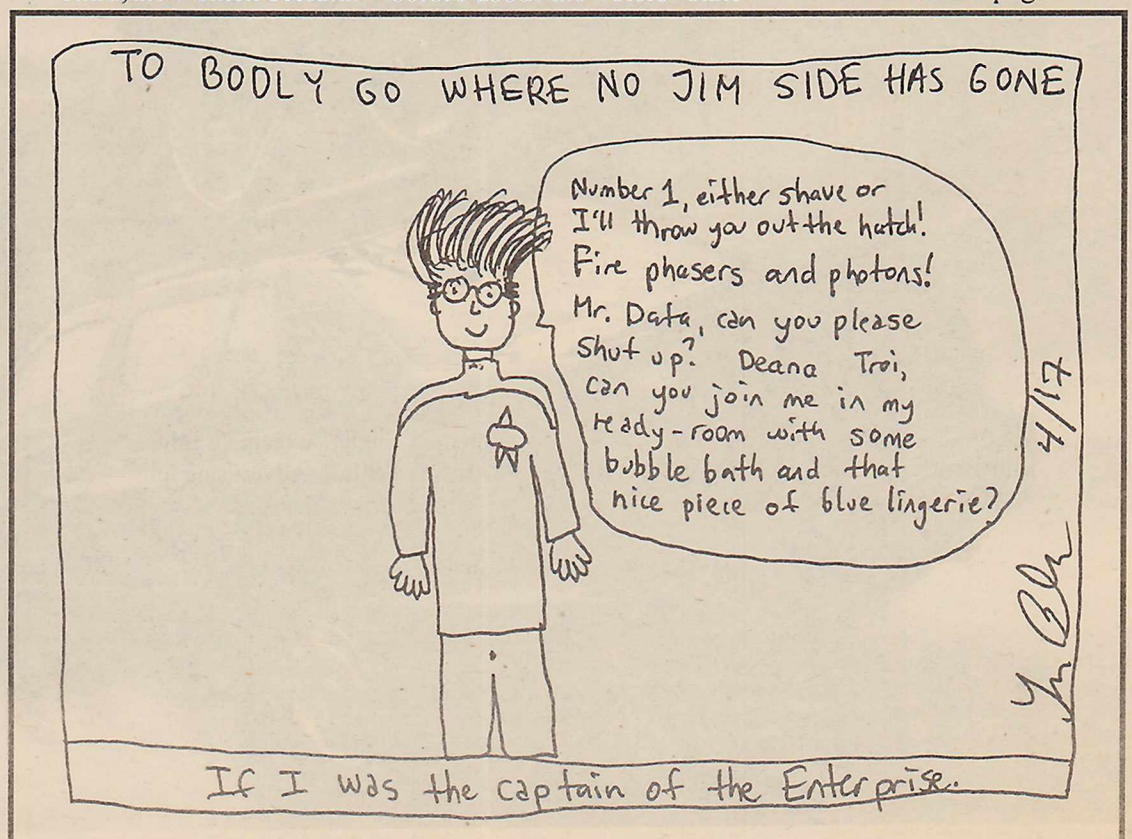 TO BODLY GO WHERE NO JIM SIDE HAS GONE
Number 1, either shave or
I'll throw you out the hatch!
Fire phasers and photons!
Mr. Data, can you please
shut up? Deana Troi,
can you join me in my
ready-room with some
bubble bath and that
nice piece of blue lingerie?
4/17
If I was the captain of the Enterprise..